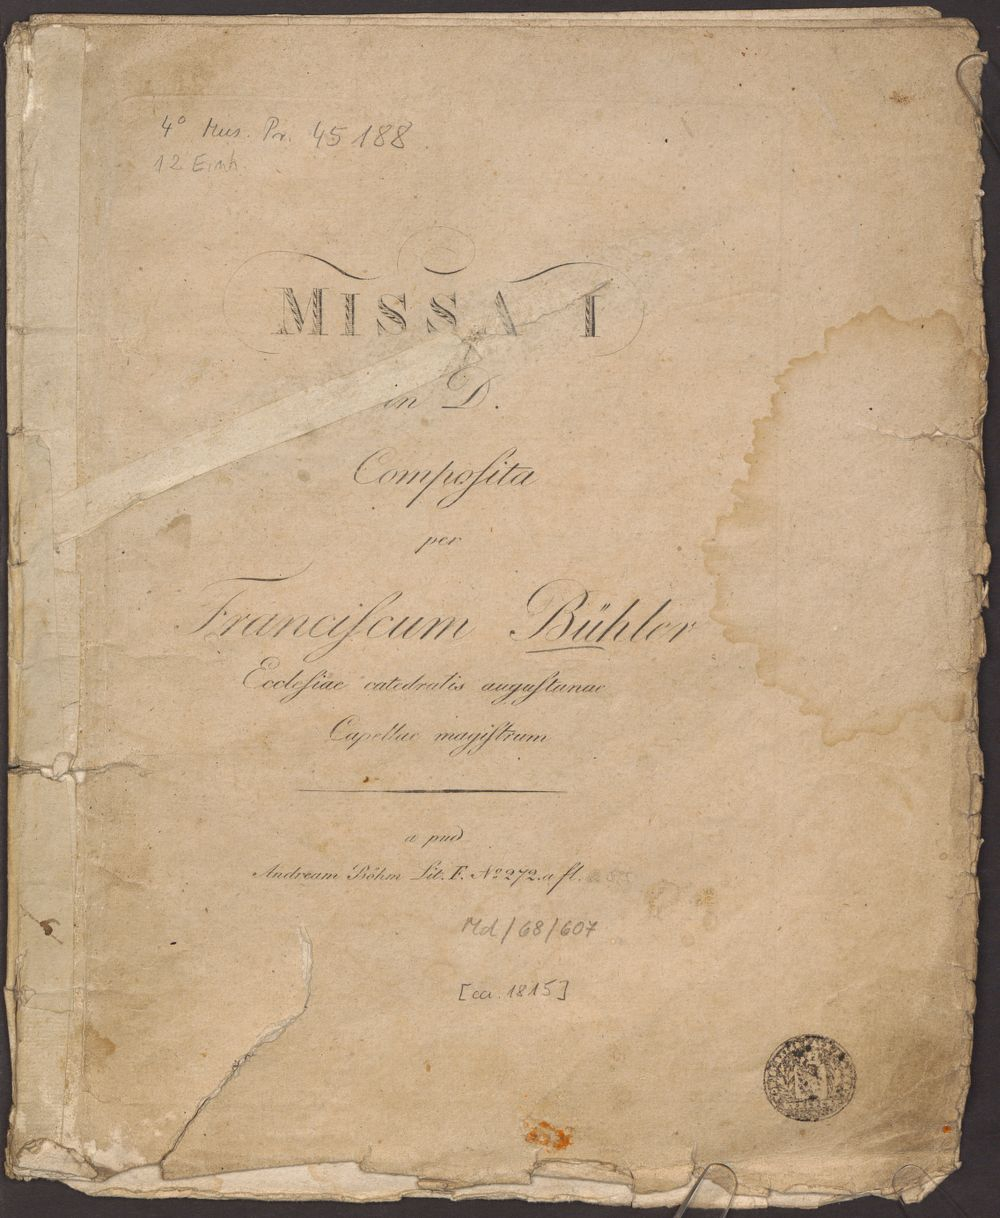 4° Mus. Pr. 45 188
12 Einh.
MISSA I
in D.
Composita
per
Franciscum Bühler
Ecclesiae catedralis augustanae
Capellae magistrum
a pud
Andream Böhm Lit. F. No 272. a fl.
Md/68/607
[ca. 1815]